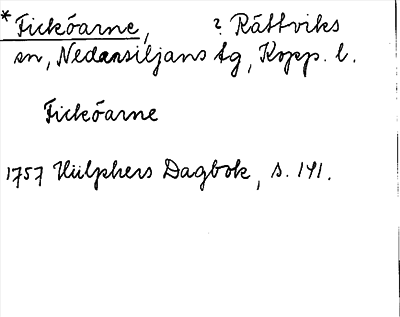 *Fickóarne, ? Rättviks
sn, Nedansiljans tg, Kopp. l.
Fickóarne
1757 Hülphers Dagbok, s. 141.